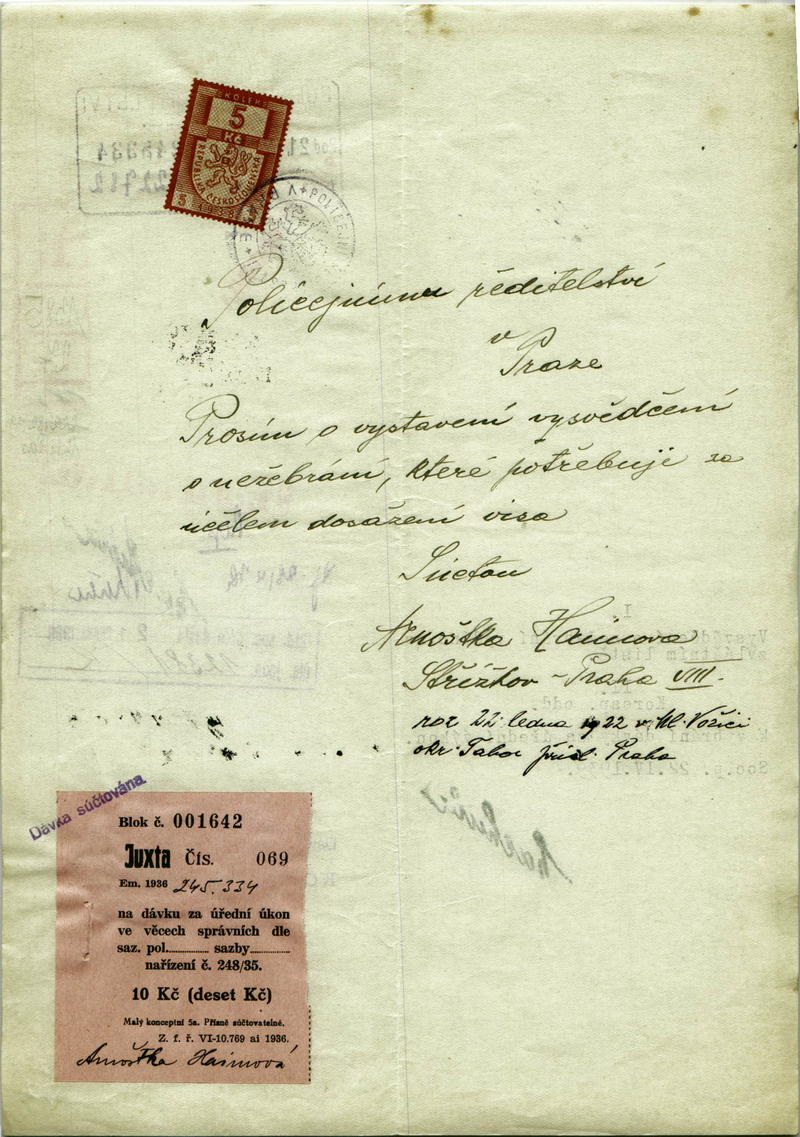 KOLEK
5
Kč
REPUBLIKA ČESKOSLOVENSKÁ
Policejnímu ředitelství
v
Praze
Prosím o vystavení vysvědčení
o nežebrání, které potřebuji za
účelem dosažení visa
Arnoštka Haimova
Střížkov - Praha VIII.
nar 22. ledna 1922 v Ml. Vožici
okr. Tabor přísl. Praha
Dávka súčtována
Blok č. 001642
Juxta Čís. 069
Em. 1936 245.334
na dávku za úřední úkon
ve věcech správních dle
saz. pol.......... sazby..........
nařízení č. 248/35.
10 Kč (deset Kč)
Malý konceptní 5a. Přísně súčtovatelné.
Z. f. ř. VI-10.769 ai 1936.
Arnoštka Haimová